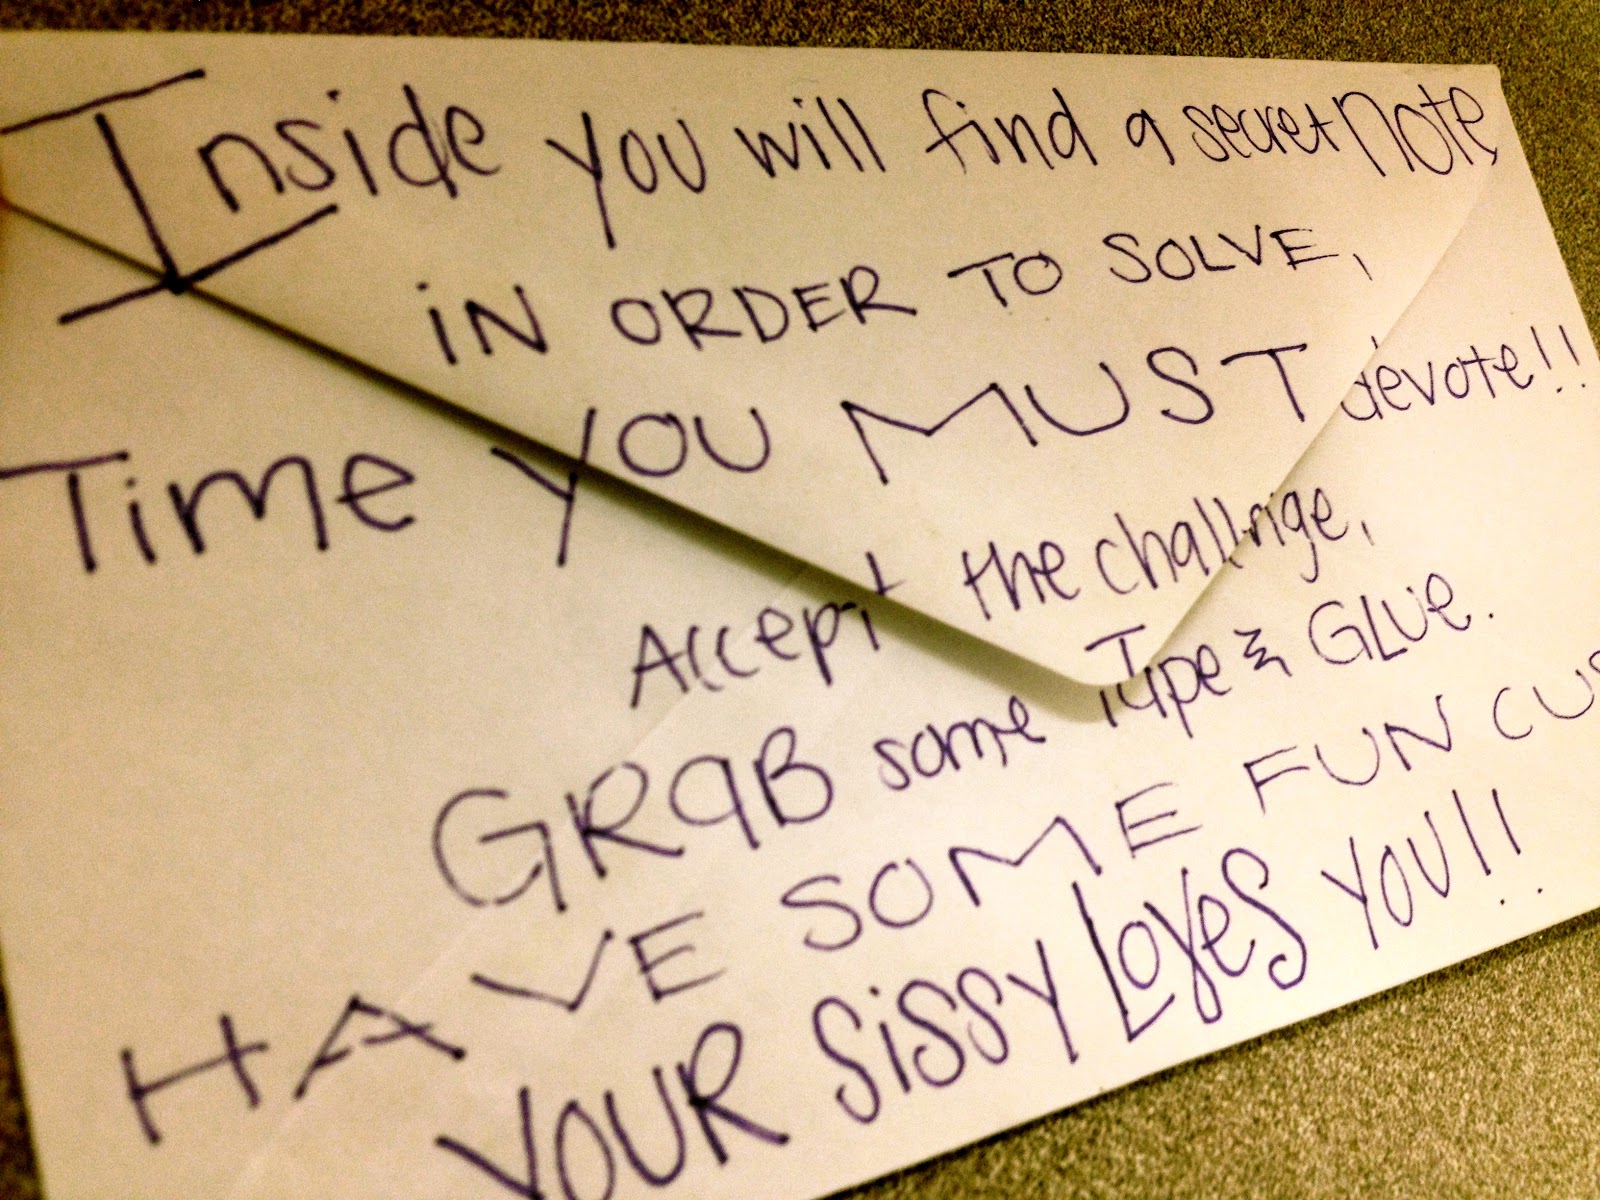 Inside you will find a secret note,
iN ORDER TO SOLVE,
Time you MUST devote!!
Accept the challenge,
GRAB some Tape & GLUe.
HAVE SOME FUN CUS
YOUR SiSSY LoVeS YOU!!